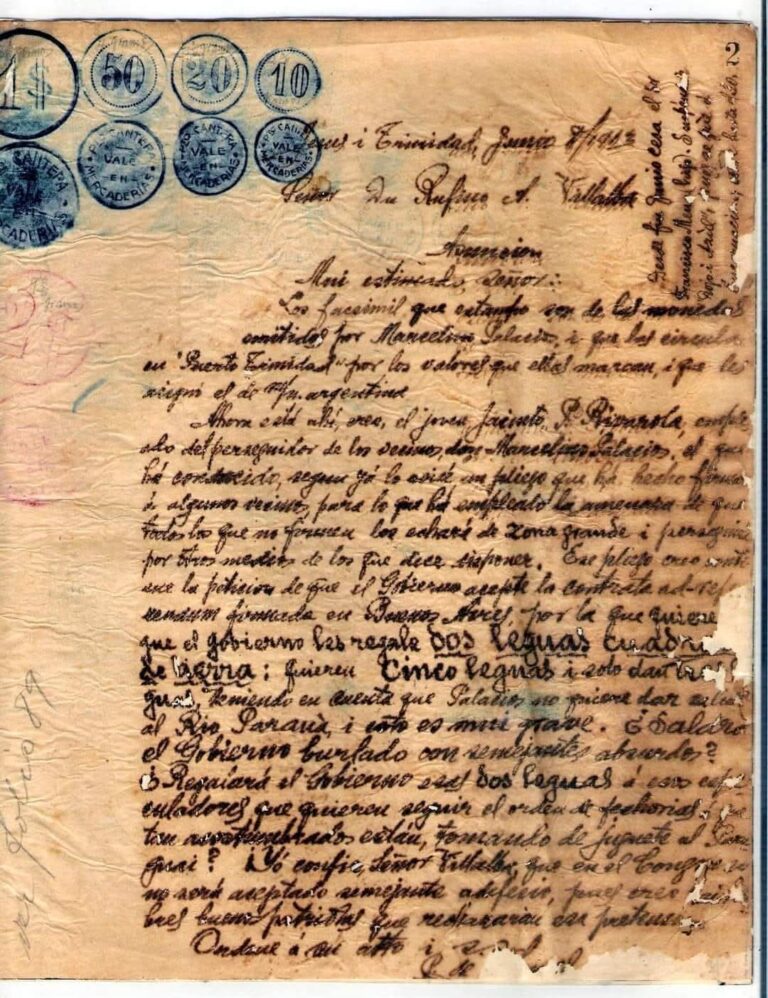 2
1$
50
20
10
Pto CANTERA
VALE
EN
MERCADERIAS
Pto CANTERA
VALE
EN
MERCADERIAS
Pto CANTERA
VALE
EN
MERCADERIAS
Pto CANTERA
VALE
EN
MERCADERIAS
Jesus i Trinidad, Junio 8/191
Señor Dn Rufino A. Villalba
Asuncion
Mui estimado señor:
Los facsimil que estampo son de las monedas
emitidas por Marcelino Palacio, i que las circula
en "Puerto Trinidad" por los valores que ellas marcan, i que les
asignó el de m/n. argentina
Ahora está ahí, creo, el joven Jacinto P. Rivarola, emple
ado del perseguidor de los vecinos, don Marcelino Palacios, el que
há conducido, segun yá le avisé un pliego que há hecho firmar
á algunos vecinos, para lo que há empleado la amenaza de que
todos los que no firmen los echará de zona grande i perseguirá
por otros medios de los que dice disponer. Ese pliego creo conti
ene la peticion de que el Gobierno acepte la contrata ad-refe
rendum firmada en Buenos Aires, por la que quiere
que el gobierno les regale dos leguas cuadra
de tierra: quieren Cinco leguas i solo dan tres
guas, teniendo en cuenta que Palacios no quiere dar salida
al Rio Paraná, i esto es mui grave. ó Saldrá
el Gobierno burlado con semejantes absurdos?
ó Regalará el Gobierno esas dos leguas á esos espe
culadores que quieren seguir el orden de fechorias á que
tan acostumbrados están, tomando de juguete al Para
guai? Yó confio, Señor Villalba, que en el Congreso
no será aceptado semejante adefecio, pues creo
bres buenos patriotas que rechazarán esa pretencion
Ordene á su atto i
Desde fin Junio cesa el Sr
Francisco
ver folio 89